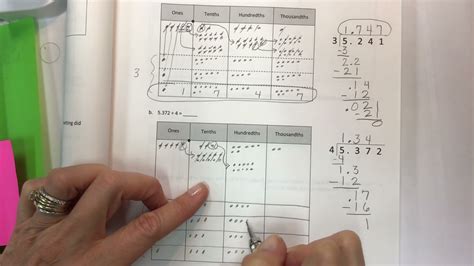 Ones Tenths Hundredths Thousandths
1.747
3 5.241
-3
2.2
-21
.14
-12
.021
-21
3
1 7 4 7
ating did
b. 5.372 ÷ 4 = _____
Ones Tenths Hundredths Thousandths
1.34
4 5.372
-4
1.3
-12
.17
-16
1